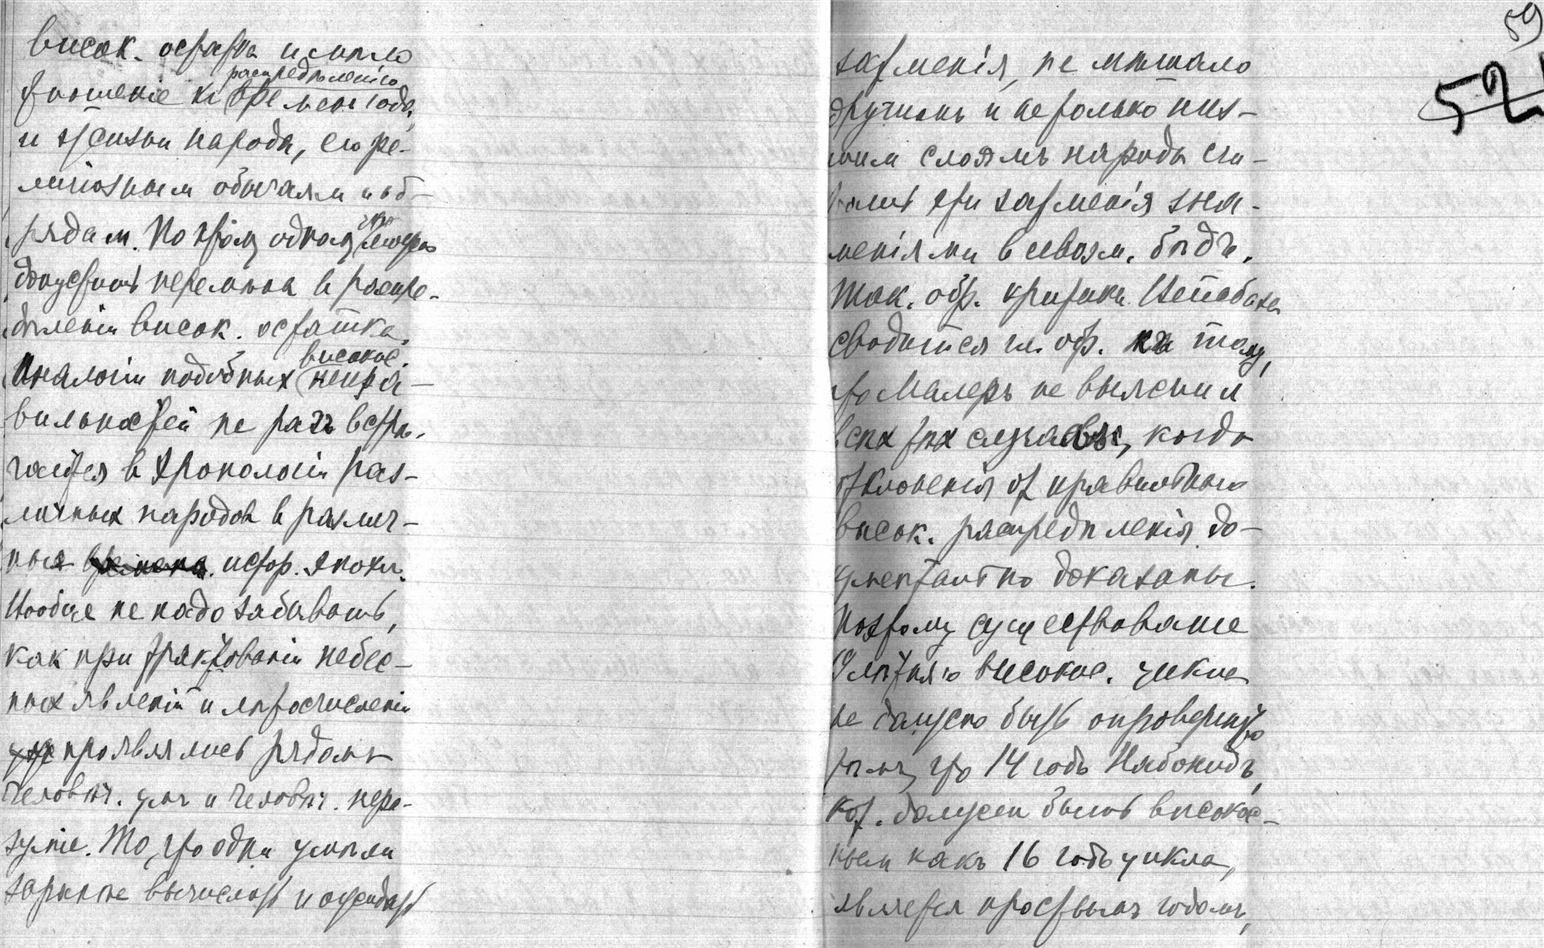 висок. остатка имѣло
распредѣленію
отношеніе къ времени года,
и жизни народа, его ре-
лигіознымъ обычаям и об-
рядам. Поэтому одно
допустить перемѣна в распре-
дѣленіи висок. остатка.
високос
Аналогіи подобных непра-
вильностей не разъ встрѣ-
чается в хронологіи раз-
личных народов в различ-
ныя истор. эпохи.
Вообще не надо забывать,
как при трактованіи небес-
ных явленій и лѣтосчисленій
проявлялись рядомъ
человѣч. умъ и человѣч. нера-
зуміе. То, что одни умѣли
заранѣе вычислять и ожидать
59
52
затменія, не мѣшало
другимъ и не только низ-
шим слоямъ народа счи-
тать эти затменія зна-
меніями
Так. обр. критика Вейсбаха
сводится гл. обр. къ тому,
что Малеръ не выяснил
всѣх тѣх случаевъ, когда
отклоненія от правильнаго
висок. распредѣленія до-
кументально доказаны.
Поэтому существованіе
19 лѣтняго високос. цикла
не должно быть опровергнуто
тѣмъ, что 14 годъ Набонида,
кот. должен быть високос-
ным какъ 16 годъ цикла,
является простымъ годомъ,